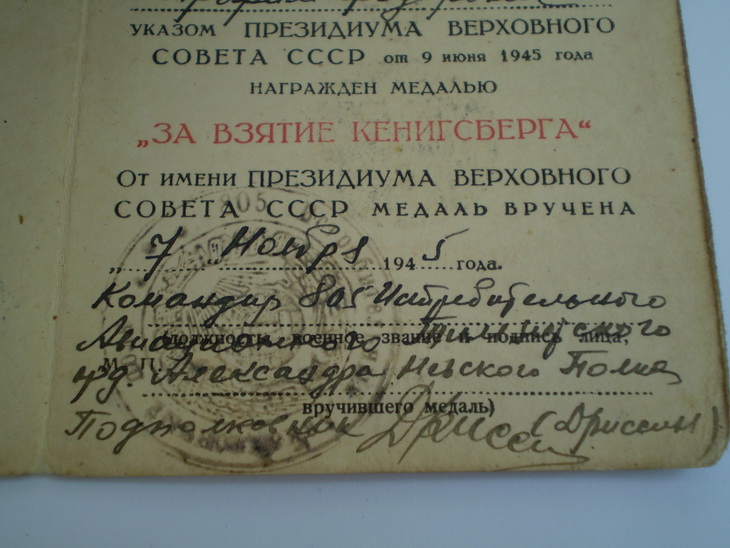 УКАЗОМ ПРЕЗИДИУМА ВЕРХОВНОГО
СОВЕТА СССР от 9 июня 1945 года
НАГРАЖДЕН МЕДАЛЬЮ
„ЗА ВЗЯТИЕ КЕНИГСБЕРГА“
От имени ПРЕЗИДИУМА ВЕРХОВНОГО
СОВЕТА СССР МЕДАЛЬ ВРУЧЕНА
„7" Ноября 1945 года.
Командир 805 Истребительного
Авиационного Тильзитского
(должность, военное звание и подпись лица,
М.П. орд. Александра Невского Полка
вручившего медаль)
Подполковник (Дриссин)